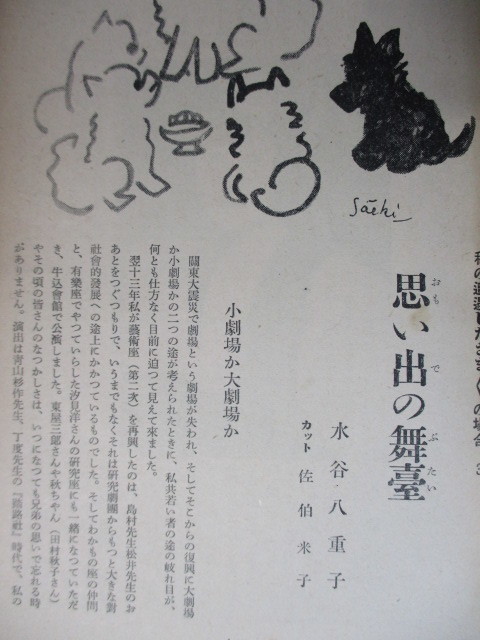 Säeki
思い出の舞臺
おも
で
ぶたい
水谷・八重子
カット 佐伯米子
小劇場か大劇場か
關東大震災で劇場という劇場が失われ、そしてそこからの復興に大劇場
か小劇場かの二つの途が考えられたときに、私共若い者の途の岐れ目が、
何とも仕方なく目前に迫つて見えて来ました。
翌十三年私が藝術座（第二次）を再興したのは、島村先生松井先生のお
あとをつぐつもりで、いうまでもなくそれは研究劇團からもつと大きな對
社會的發展への途上にかかつているものでした。そしてわかもの座の仲間
と、有樂座でやつていらした汐見洋さんの研究座にも一緒になつていただ
き、牛込會館で公演しました。東屋三郎さんや秋ちやん（田村秋子さん）
やその頃の皆さんのなつかしさは、いつになつても兄弟の思いで忘れる時
がありません。演出は青山杉作先生、丁度先生の『踏路社』時代で、私の